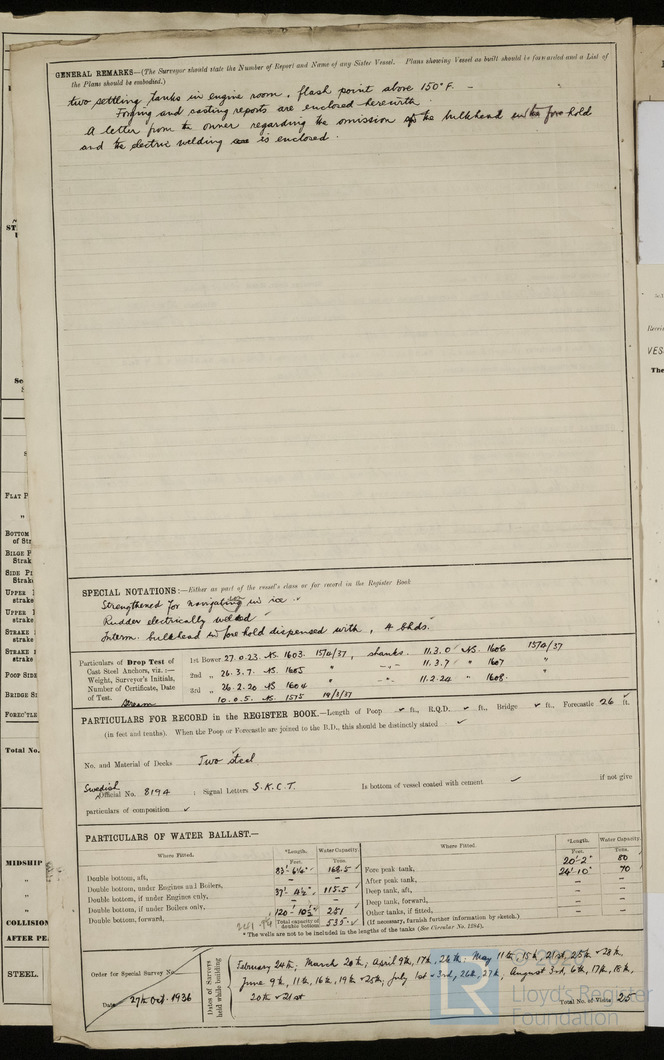 GENERAL REMARKS—(The Surveyor should state the Number of Report and Name of any Sister Vessel. Plans showing Vessel as built should be forwarded and a List of
the Plans should be embodied.)
two settling tanks in engine room, flash point above 150°F. –
Forging and casting reports are enclosed herewith
A letter from the owner regarding the omission of the bulkhead in the fore hold
and the electric welding is enclosed.
SPECIAL NOTATIONS:—Either as part of the vessel's class or for record in the Register Book
Strengthened for navigating in ice ✓
Rudder electrically welded ✓
Interm. bulkhead in fore hold dispensed with, 4 bhds.
Particulars of Drop Test of
Cast Steel Anchors, viz.:—
Weight, Surveyor's Initials,
Number of Certificate, Date
of Test.
1st Bower 27.0.23. AS. 1603. 15/4/37, shanks. 11.3.0 AS. 1606 15/4/37
2nd „ 26.3.7. AS. 1605 " -"- 11.3.7 " 1607 "
3rd „ 26.2.20 AS 1604 " -"- 11.2.24 " 1608. "
Stream 10.0.5. AS. 1575 19/3/37
PARTICULARS FOR RECORD in the REGISTER BOOK.—Length of Poop ✓ ft., R.Q.D. ✓ ft., Bridge ✓ ft., Forecastle 26 ft.
(in feet and tenths). When the Poop or Forecastle are joined to the B.D., this should be distinctly stated ✓
No. and Material of Decks Two steel
Swedish
Official No. 8194 ; Signal Letters S.K.C.T. Is bottom of vessel coated with cement ✓ if not give
particulars of composition ✓
PARTICULARS OF WATER BALLAST.—
Where Fitted. *Length. Water Capacity. Where Fitted. *Length. Water Capacity.
Feet. Tons. Feet. Tons.
Double bottom, aft, 83'-6½" 168.5 ✓ Fore peak tank, 20'-2" 80
Double bottom, under Engines and Boilers, – – After peak tank, 24'-10" 70
Double bottom, if under Engines only, 37'-4½" 115.5 ✓ Deep tank, aft, – –
Double bottom, if under Boilers only, – – Deep tank, forward, – –
Double bottom, forward, 120'-10½" 251 ✓ Other tanks, if fitted, – –
Total capacity of double bottom 535 ✓ (If necessary, furnish further information by sketch.)
* The wells are not to be included in the lengths of the tanks (See Circular No. 1284).
Order for Special Survey No.
Date 27th Oct. 1936
Dates of Surveys
held while building
February 24th; March 20th, April 9th, 17th, 26th; May 11th, 15th, 21st, 25th & 28th,
June 9th, 11th, 16th, 19th & 25th, July 1st & 3rd, 26th, 27th, August 3rd, 6th, 17th, 18th,
20th & 21st
Total No. of Visits 25
© 2020
LR
Lloyd's Register
Foundation
FLAT P
BOTTOM
of Str
BILGE P
Strak
SIDE P
Strak
UPPER
strake
UPPER
strake
STRAKE
strake
STRAKE
strake
POOP SID
BRIDGE S
FOREC'TLE
Total No.
MIDSHIP
COLLISION
AFTER PE
STEEL.
VES
The